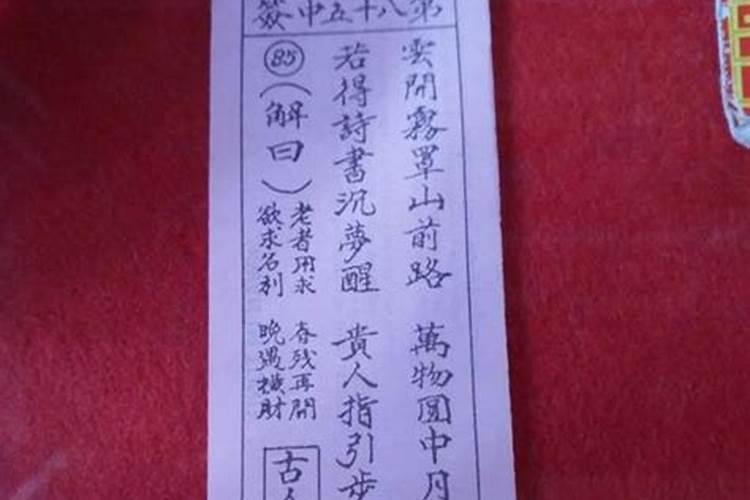 第八十五中簽
雲開霧罩山前路 萬物圓中月
若得詩書沉夢醒 貴人指引步
85
（解曰）
老者用求 春残再開
欲求名利 晚遇橫財
古